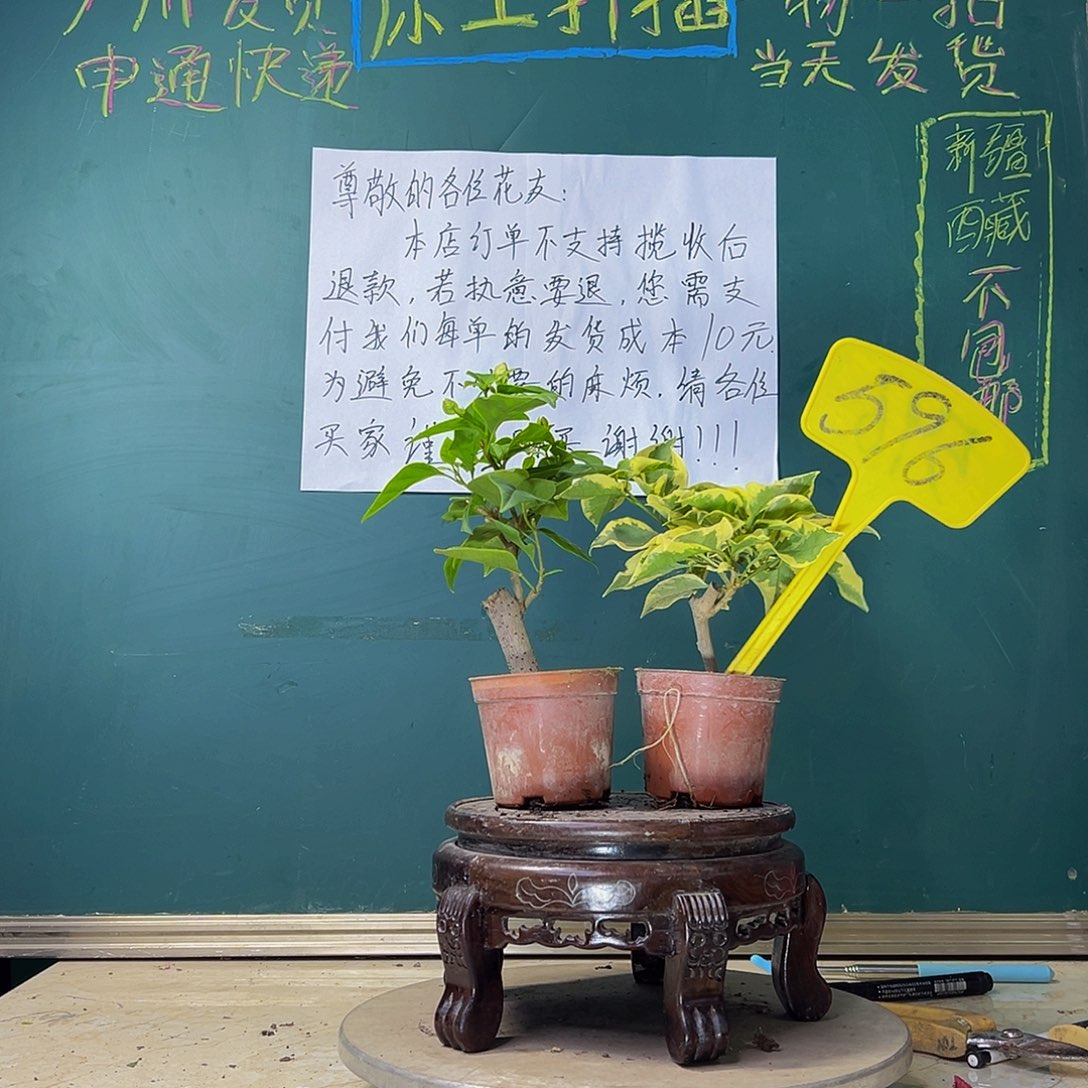 广州发货
申通快递
原土打播
物一拍
当天发货
新疆
西藏
不同邮
尊敬的各位花友:
本店订单不支持揽收后
退款,若执意要退,您需支
付我们每单的发货成本10元.
为避免不 要的麻烦.请各位
买家谨 买 谢谢!!!
596